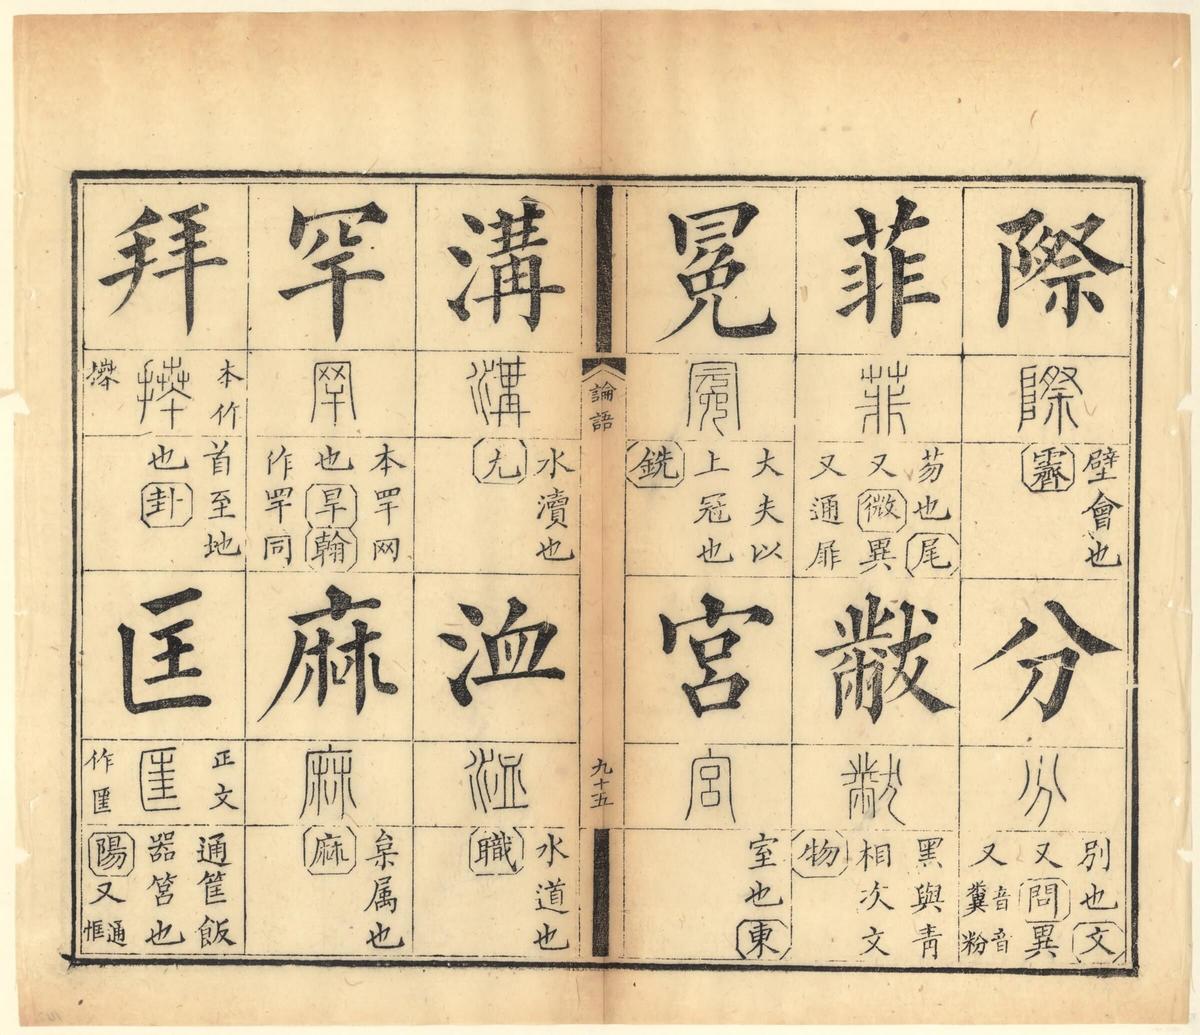 際
際
壁會也
霽
分
分
別也文
又問異
又音糞音粉
菲
菲
芴也尾
又微異
又通屝
黻
黻
黑與青
相次文
物
冕
冕
大夫以
上冠也
銑
宮
宮
室也東
論語
九十五
溝
溝
水瀆也
尤
洫
洫
水道也
職
罕
罕
本罕网
也旱翰
作罕同
麻
麻
枲属也
麻
拜
本作
首至地
也卦
匡
正文
匡
作匩
通筐飯
器筥也
陽又通恇